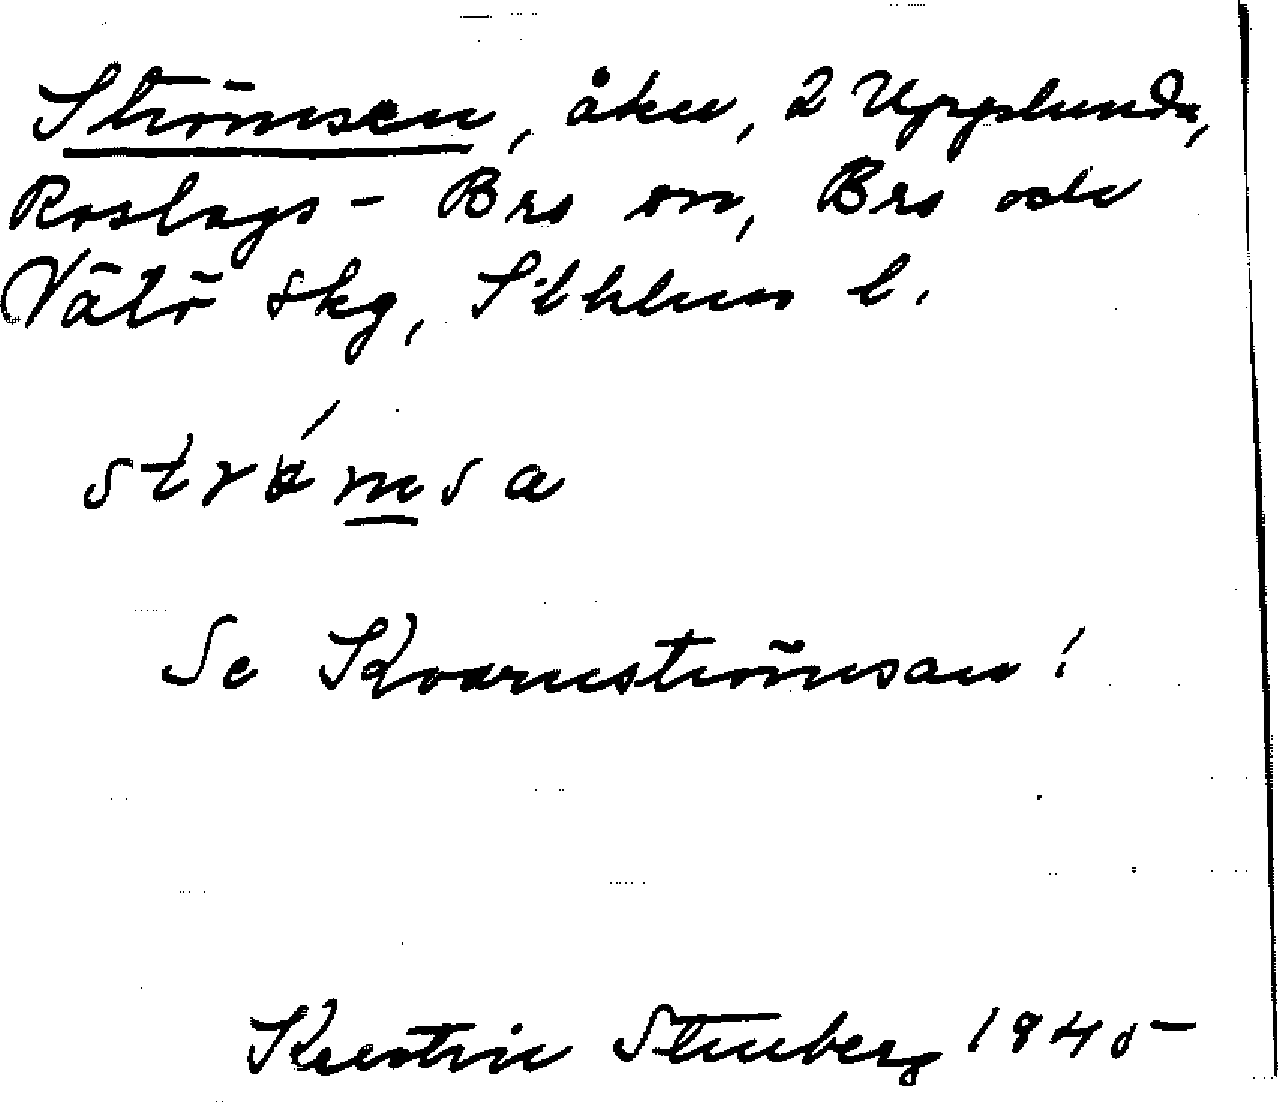 Strömsen, åker, 2 Upplunda,
Roslags-Bro sn, Bro och
Vätö skg, Sthlms l.
strömsa
Se Kvarnströmsan!
Kerstin Stenberg 1945